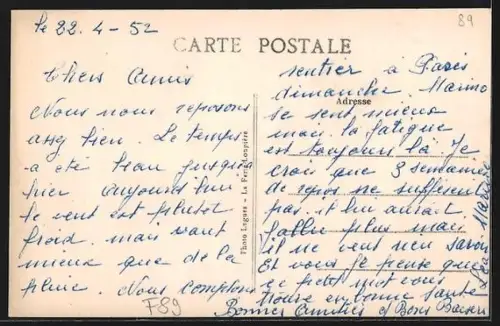 le 22-4-52
89
CARTE POSTALE
Chers Amis
Nous nous reposons
assz bien. Le temps
a été beau jusqu'a
hier aujourd'hui
le vent est plutot
froid. mais vaut
mieux que de la
pluie. Nous comptons
F89
Photo Legare - La Ferté-Loupière
Adresse
rentrer à Paris
dimanche. Marino
se sent mieux
mais la fatigue
est toujours là. Je
crois que 3 semaines
de repos ne suffisent
pas. il lui aurait
fallu plus mais
il ne veut rien savoir
Et vous je pense que
ce petit mot vous
trouve en bonne santé
Bonnes Amitiés